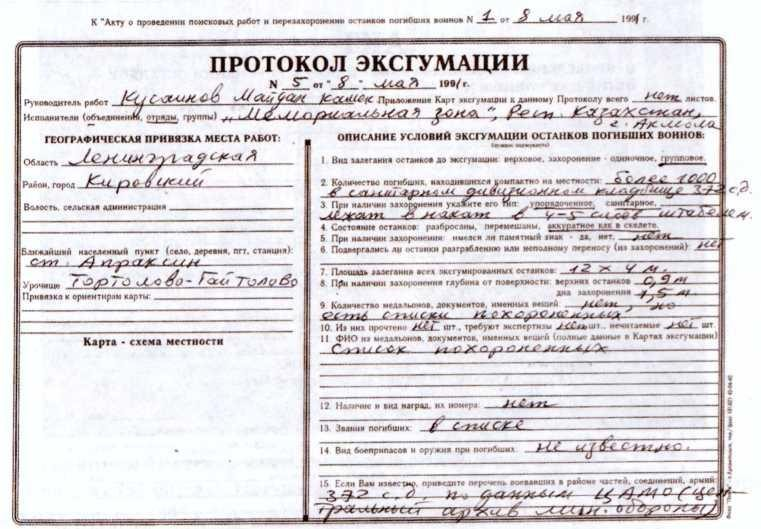 К "Акту о проведении поисковых работ и перезахоронении останков погибших воинов N 1 от 8 мая 1991 г.
ПРОТОКОЛ ЭКСГУМАЦИИ
N 5 от "8" мая 1991 г.
Руководитель работ Кусаинов Майдан Приложение Карт эксгумации к данному Протоколу всего нет листов.
Исполнители (объединения, отряды, группы) "Мемориальная зона", Респ. Казахстан,
г. Акмола
ГЕОГРАФИЧЕСКАЯ ПРИВЯЗКА МЕСТА РАБОТ:
Область Ленинградская
Район, город Кировский
Волость, сельская администрация
Ближайший населенный пункт (село, деревня, пгт, станция):
ст. Апраксин
Урочище Тортолово-Гайтолово
Привязка к ориентирам карты:
Карта - схема местности
ОПИСАНИЕ УСЛОВИЙ ЭКСГУМАЦИИ ОСТАНКОВ ПОГИБШИХ ВОИНОВ:
(нужное подчеркнуть)
1. Вид залегания останков до эксгумации: верховое, захоронение - одиночное, групповое.
2. Количество погибших, находившихся компактно на местности: более 1000
в санитарном дивизионном кладбище 372 с.д.
3. При наличии захоронения укажите его тип: упорядоченное, санитарное,
лежат в накат в 4-5 слоев штабелем.
4. Состояние останков: разбросаны, перемешаны, аккуратное клк в скелете.
5. При наличии захоронения: имелся ли памятный знак - да, нет, нет
6. Подвергались ли останки разграблению или неполному переносу (из захоронений): нет
7. Площадь залегания всех эксгумированных останков: 12 х 4 м.
8. При наличии захоронения глубина от поверхности: верхних останков 0,9 м
дна захоронения 1,5 м.
9. Количество медальонов, документов, именных вещей: нет, но
есть списки похороненных
10. Из них прочтено нет шт., требуют экспертизы нет шт., нечитаемые нет шт.
11. ФИО из медальонов, документов, именных вещей (полные данные в Картах эксгумации)
Список похороненных
12. Наличие и вид наград, их номера: нет
13. Звания погибших: в списке
14. Вид боеприпасов и оружия при погибших: не известно.
15. Если Вам известно, приведите перечень воевавших в районе частей, соединений, армий:
372 с.д. по данным ЦАМО (цен-
тральный архив мин. обороны)